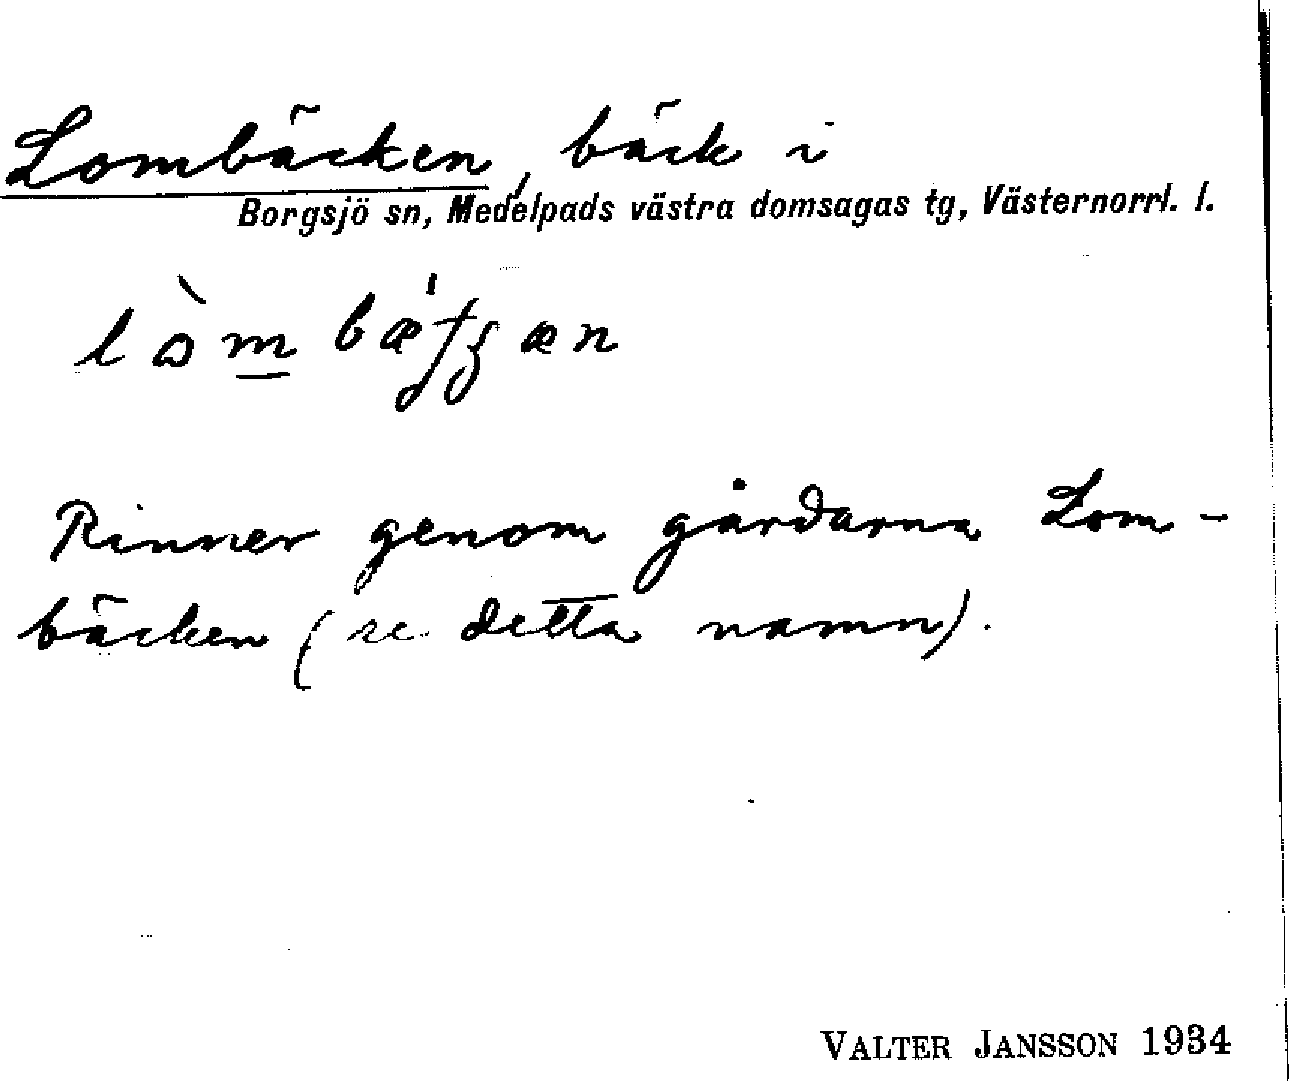 Lombäcken, bäck i
Borgsjö sn, Medelpads västra domsagas tg, Västernorrl. l.
Rinner genom gårdarna Lom-
bäcken (se detta namn).
VALTER JANSSON 1934